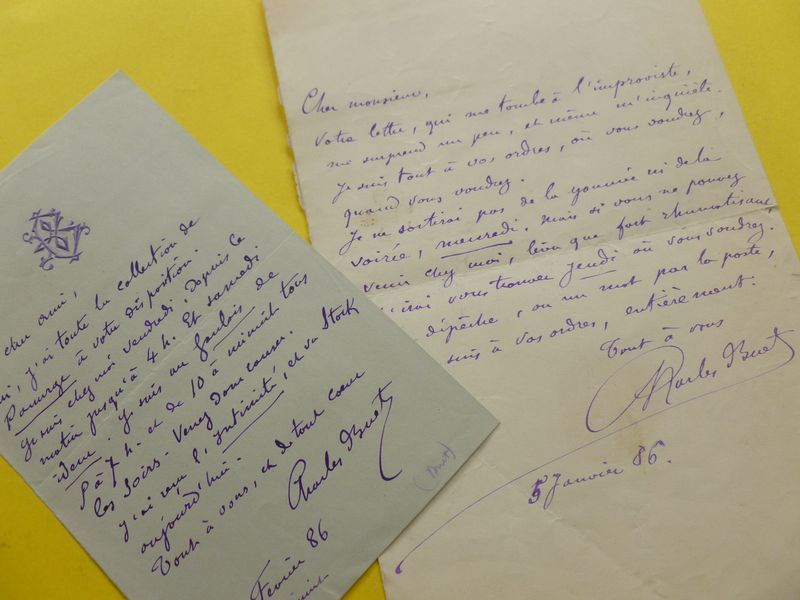 Cher monsieur,
Votre lettre, qui me tombe à l'improviste,
me surprend un peu, et même m'inquiète.
Je suis tout à vos ordres, où vous voudrez,
quand vous voudrez.
Je ne sortirai pas de la journée ni de la
soirée, mercredi. Mais si vous ne pouvez
venir chez moi, bien que fort rhumatisant,
j'irai vous trouver jeudi où vous voudrez.
dépêche, ou un mot par la poste,
suis à vos ordres, entièrement.
Tout à vous
Charles Buet
5 Janvier 86.
cher ami,
j'ai toute la collection de
Panurge à votre disposition.
Je suis chez moi vendredi. Depuis le
matin jusqu'à 4 h. Et samedi
idem. Je suis au Gaulois de
5 à 7 h. et de 10 à minuit tous
les soirs. Venez donc causer.
J'ai reçu l'Intimité, et va Stock
aujourd'hui.
Tout à vous, et de tout cœur
Charles Buet
(Buet)
Février 86